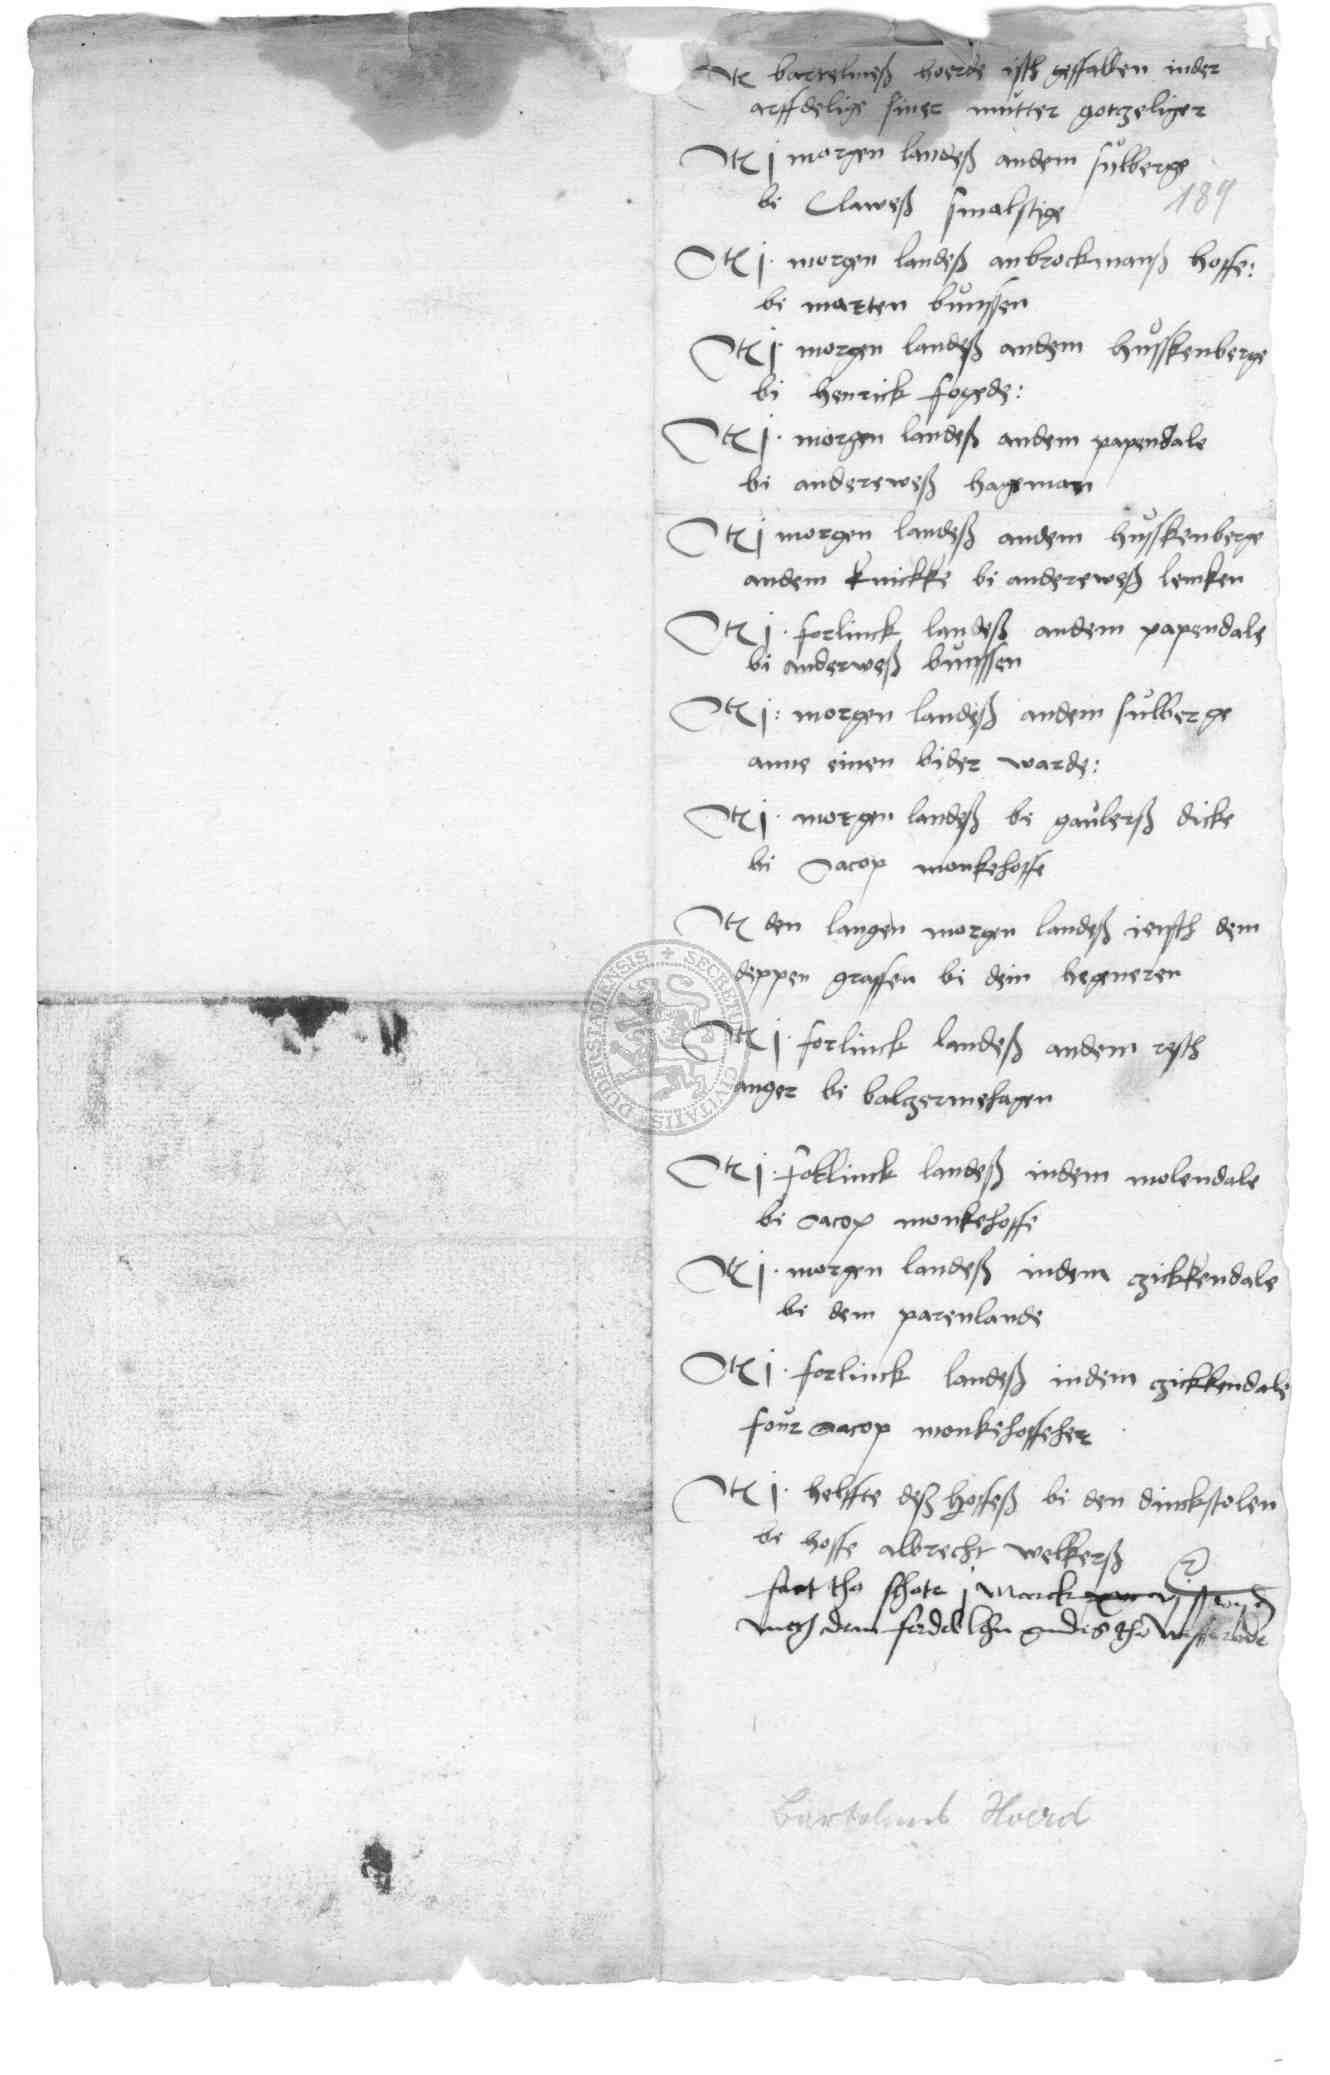 It bartelmeß hoerde isth gesfallen inder
arffdelige siner mutter gotzeliger
It j morgen landeß andem sulberge
bi Claweß smalstige
189
It j. morgen landeß anbrockmanß hoffe:
bi marten bunssen
It j morgen landeß andem husskenberge
bi henrick fogede:
It j. morgen landeß andem papendale
bi andereweß hageman
It j morgen landeß andem husskenberge
andem knickke bi andereweß lemken
It j. forlinck landeß andem papendale
bi anderweß bunssen
It j: morgen landeß andem sulberge
anne einen bider warde:
It j. morgen landeß bi gaulerß dicke
bi Jacop monkehoffe
It den langen morgen landeß iensth dem
deppen graffen bi dem hegeneren
It j. forlinck landeß andem rysth
anger bi balzermehagen
It j. forlinck landeß indem molendale
bi Jacop monkehoffe
It j. morgen landeß indem zickkendale
bi dem parenlande
It j. forlinck landeß indem zickkendale
four Jacop monkehoffeher
It j. helffte deß hoffeß bi den dinckstolen
bi hoffe albrecht welkerß
fact tho schote j marck
dem ferdel
Bartelmeß Hoerd
SECRETU CIVITATIS DUDERSTADIENSIS